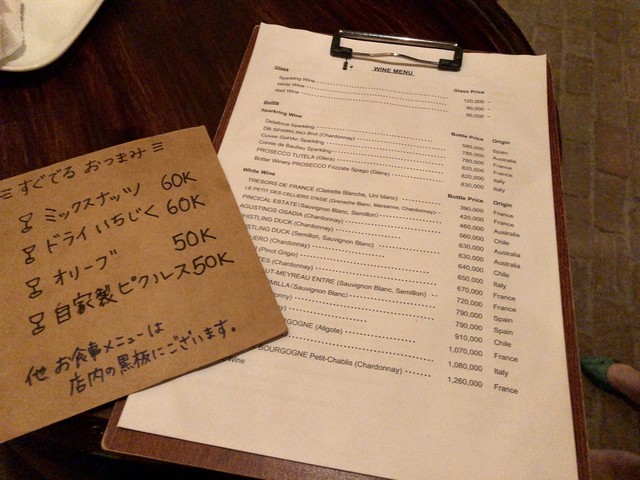 ≡ すぐでる おつまみ ≡
ミックスナッツ 60K
ドライいちじく 60K
オリーブ 50K
自家製ピクルス 50K
他 お食事メニューは
店内の黒板にございます。
WINE MENU
Glass Glass Price
Sparkling Wine 120,000 ~
White Wine 90,000 ~
Red Wine 90,000 ~
Bottle
Sparkring Wine Bottle Price Origin
Sparkling 580,000 Spain
DB SPARKLING Brut (Chardonnay) 780,000 Australia
Sparkling 780,000 France
Comte de Baudieu Sparkling 820,000 France
PROSECCO TUTELA (Glera) 820,000 Italy
Botter Winery PROSECCO Frizzate Spago (Glera) 830,000 Italy
White Wine Bottle Price Origin
TRESORS DE FRANCE (Clairette Blanche, Uni blanc) 390,000 France
LE PETIT DES CELLIERS D'ASIE (Grenache Blanc, Marsanne, Chardonnay) 420,000 France
PINGICAL ESTATE (Sauvignon Blanc, Semillon) 460,000 Australia
AGUSTINOS OSADIA (Chardonnay) 560,000 Chile
ISTLING DUCK (Chardonnay) 630,000 Australia
STLING DUCK (Semillon, Sauvignon Blanc) 630,000 Australia
UERO (Chardonnay) 640,000 Chile
(Pinot Grigio) 650,000 Italy
TES (Chardonnay) 670,000 France
UT-MEYREAU ENTRE (Sauvignon Blanc, Semillon) 720,000 France
MILLA (Sauvignon Blanc) 790,000 Spain
790,000 Spain
910,000 Chile
OGNE (Aligote) 1,070,000 France
1,080,000 Italy
BOURGOGNE Petit-Chablis (Chardonnay) 1,260,000 France
Wine